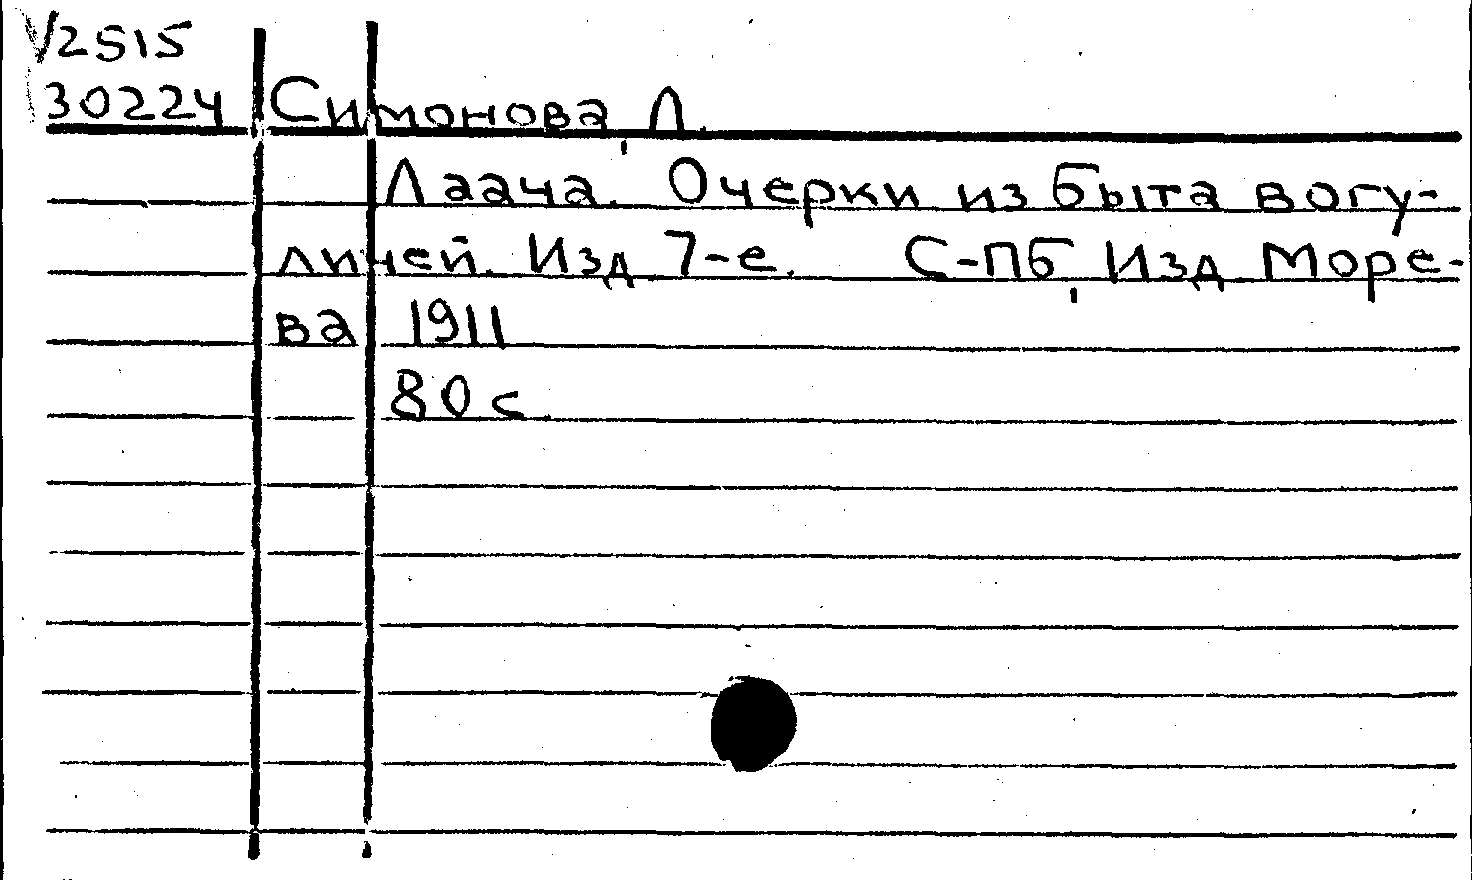 V2515
30224 Симонова, Л.
Лаача. Очерки из быта вогу-
личей. Изд. 7-е. С-ПБ, Изд. Море-
ва, 1911
80 с.